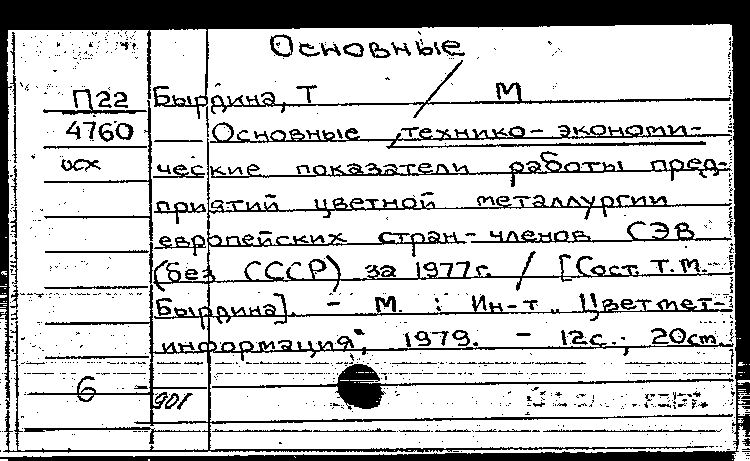 Основные
П22 Бырдина, Т М
4760 Основные технико-экономи-
исх ческие показатели работы пред-
приятий цветной металлургии
европейских стран-членов СЭВ
(без СССР) за 1977г. / [Сост. Т.М.
Бырдина]. - М. : Ин-т „Цветмет-
информация", 1979. - 12с.; 20см.
6 901